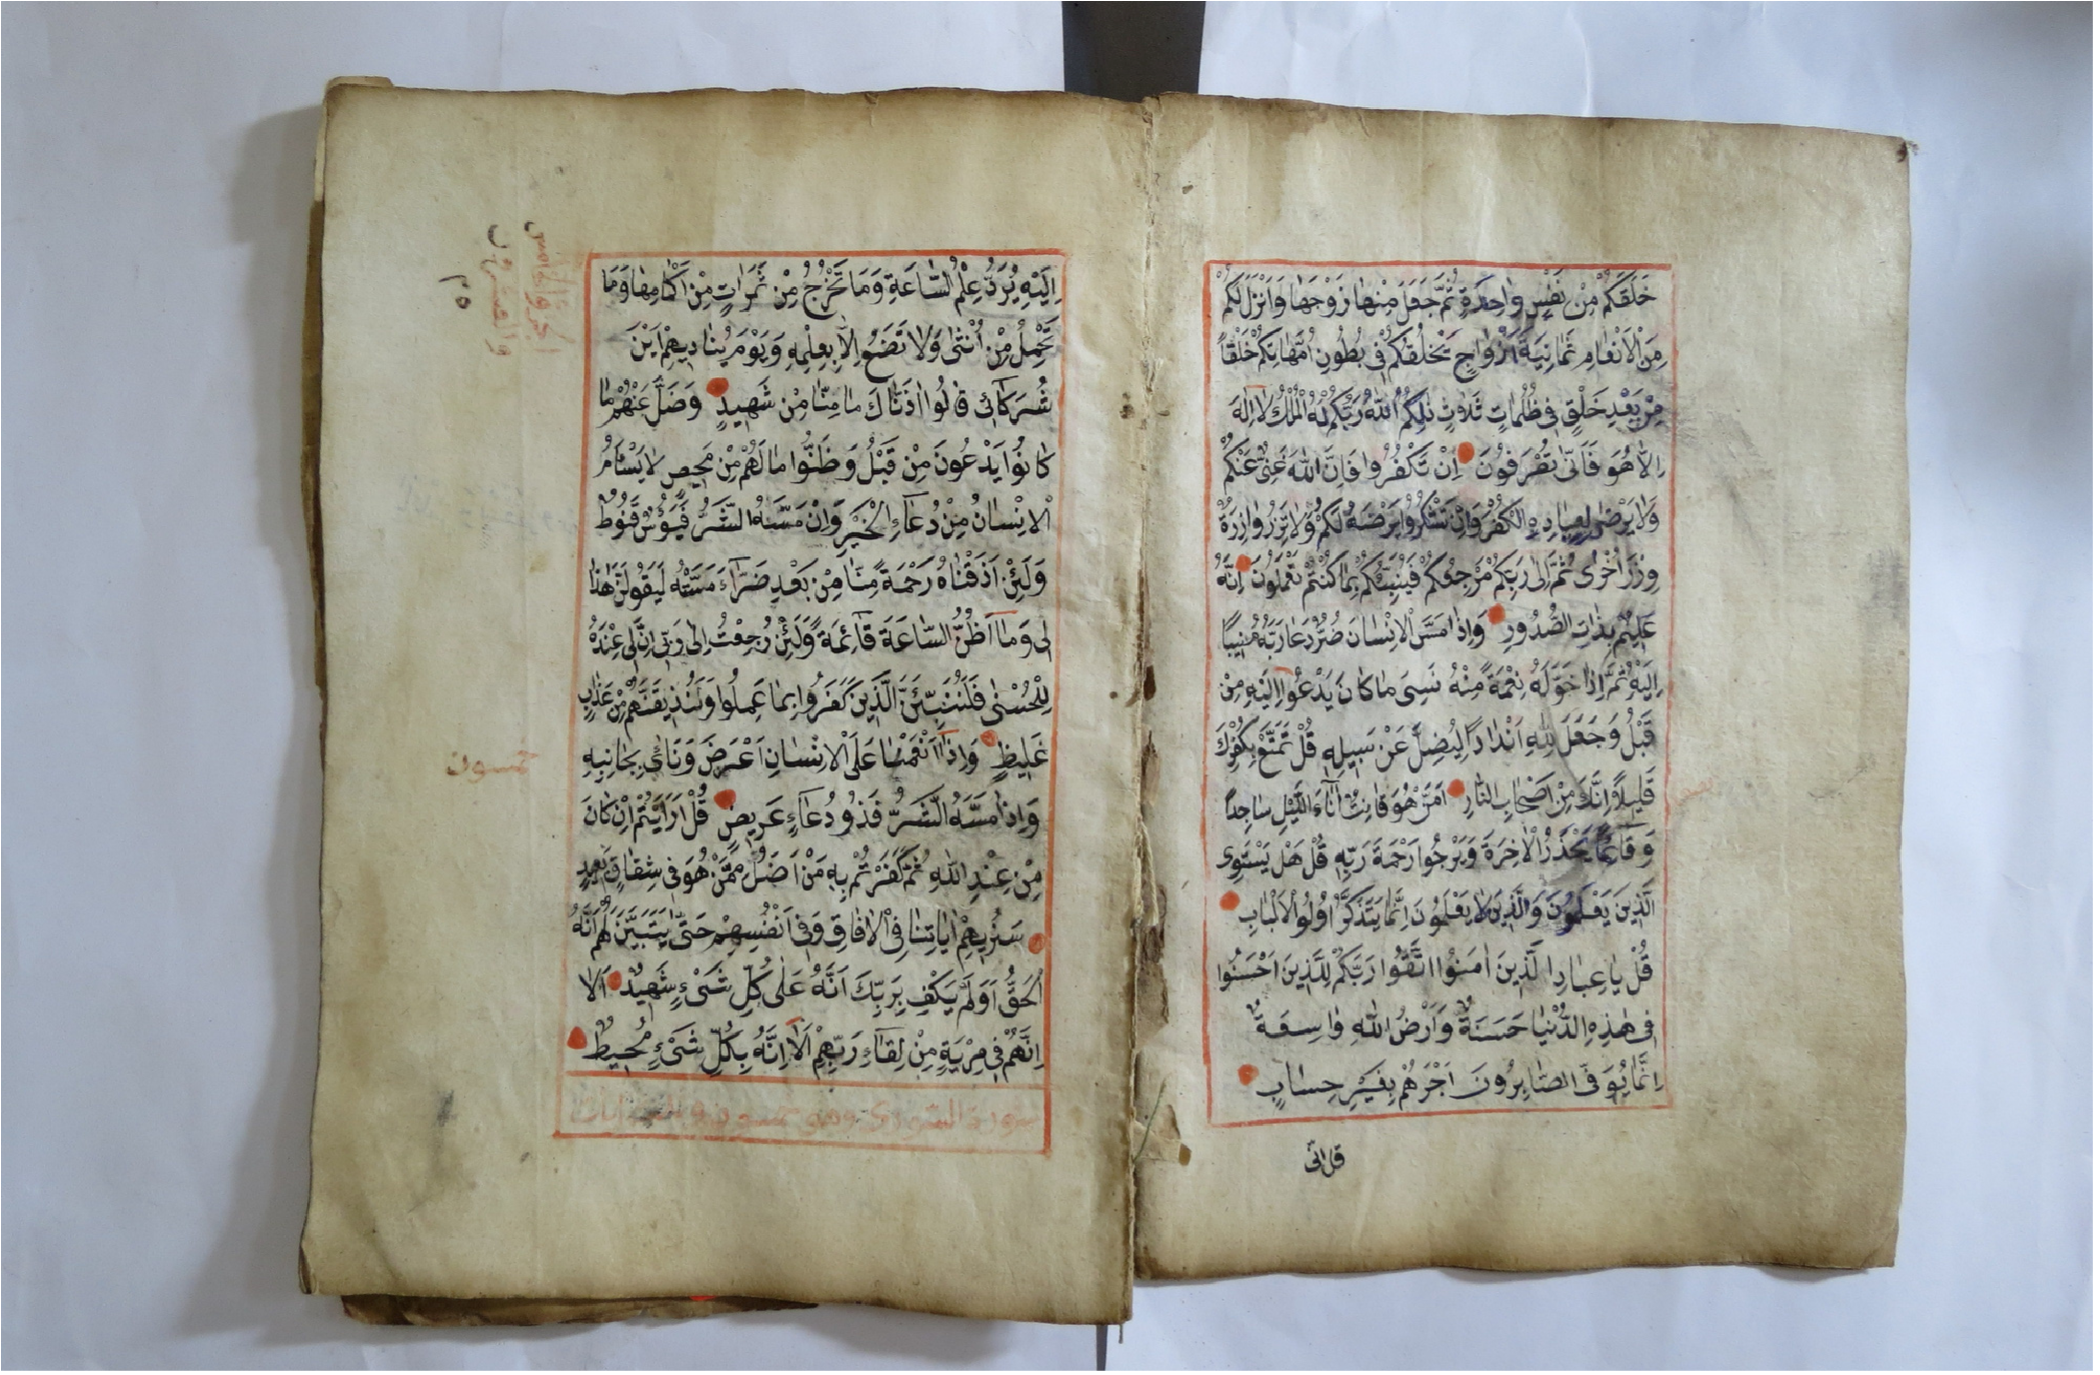 خَلَقَكُمْ مِنْ نَفْسٍ وَاحِدَةٍ ثُمَّ جَعَلَ مِنْهَا زَوْجَهَا وَاَنْزَلَ لَكُمْ
مِنَ الْاَنْعَامِ ثَمَانِيَةَ اَزْوَاجٍ يَخْلُقُكُمْ فِى بُطُونِ اُمَّهَاتِكُمْ خَلْقًا
مِنْ بَعْدِ خَلْقٍ فِى ظُلُمَاتٍ ثَلَاثٍ ذٰلِكُمُ اللّٰهُ رَبُّكُمْ لَهُ الْمُلْكُ لَا اِلٰهَ
اِلَّا هُوَ فَاَنّٰى تُصْرَفُونَ اِنْ تَكْفُرُوا فَاِنَّ اللّٰهَ غَنِىٌّ عَنْكُمْ
وَلَا يَرْضٰى لِعِبَادِهِ الْكُفْرَ وَاِنْ تَشْكُرُوا يَرْضَهُ لَكُمْ وَلَا تَزِرُ وَازِرَةٌ
وِزْرَ اُخْرٰى ثُمَّ اِلٰى رَبِّكُمْ مَرْجِعُكُمْ فَيُنَبِّئُكُمْ بِمَا كُنْتُمْ تَعْمَلُونَ اِنَّهُ
عَلِيمٌ بِذَاتِ الصُّدُورِ وَاِذَا مَسَّ الْاِنْسَانَ ضُرٌّ دَعَا رَبَّهُ مُنِيبًا
اِلَيْهِ ثُمَّ اِذَا خَوَّلَهُ نِعْمَةً مِنْهُ نَسِىَ مَا كَانَ يَدْعُوا اِلَيْهِ مِنْ
قَبْلُ وَجَعَلَ لِلّٰهِ اَنْدَادًا لِيُضِلَّ عَنْ سَبِيلِهِ قُلْ تَمَتَّعْ بِكُفْرِكَ
قَلِيلًا اِنَّكَ مِنْ اَصْحَابِ النَّارِ اَمَّنْ هُوَ قَانِتٌ اٰنَاءَ اللَّيْلِ سَاجِدًا
وَقَائِمًا يَحْذَرُ الْاٰخِرَةَ وَيَرْجُوا رَحْمَةَ رَبِّهِ قُلْ هَلْ يَسْتَوِى
الَّذِينَ يَعْلَمُونَ وَالَّذِينَ لَا يَعْلَمُونَ اِنَّمَا يَتَذَكَّرُ اُولُوا الْاَلْبَابِ
قُلْ يَا عِبَادِ الَّذِينَ اٰمَنُوا اتَّقُوا رَبَّكُمْ لِلَّذِينَ اَحْسَنُوا
فِى هٰذِهِ الدُّنْيَا حَسَنَةٌ وَاَرْضُ اللّٰهِ وَاسِعَةٌ
اِنَّمَا يُوَفَّى الصَّابِرُونَ اَجْرَهُمْ بِغَيْرِ حِسَابٍ
قل انى
اِلَيْهِ يُرَدُّ عِلْمُ السَّاعَةِ وَمَا تَخْرُجُ مِنْ ثَمَرَاتٍ مِنْ اَكْمَامِهَا وَمَا
تَحْمِلُ مِنْ اُنْثٰى وَلَا تَضَعُ اِلَّا بِعِلْمِهِ وَيَوْمَ يُنَادِيهِمْ اَيْنَ
شُرَكَائِى قَالُوا اٰذَنَّاكَ مَا مِنَّا مِنْ شَهِيدٍ وَضَلَّ عَنْهُمْ مَا
كَانُوا يَدْعُونَ مِنْ قَبْلُ وَظَنُّوا مَا لَهُمْ مِنْ مَحِيصٍ لَا يَسْاَمُ
الْاِنْسَانُ مِنْ دُعَاءِ الْخَيْرِ وَاِنْ مَسَّهُ الشَّرُّ فَيَؤُسٌ قَنُوطٌ
وَلَئِنْ اَذَقْنَاهُ رَحْمَةً مِنَّا مِنْ بَعْدِ ضَرَّاءَ مَسَّتْهُ لَيَقُولَنَّ هٰذَا
لِى وَمَا اَظُنُّ السَّاعَةَ قَائِمَةً وَلَئِنْ رُجِعْتُ اِلٰى رَبِّى اِنَّ لِى عِنْدَهُ
لَلْحُسْنٰى فَلَنُنَبِّئَنَّ الَّذِينَ كَفَرُوا بِمَا عَمِلُوا وَلَنُذِيقَنَّهُمْ مِنْ عَذَابٍ
غَلِيظٍ وَاِذَا اَنْعَمْنَا عَلَى الْاِنْسَانِ اَعْرَضَ وَنَاٰ بِجَانِبِهِ
وَاِذَا مَسَّهُ الشَّرُّ فَذُو دُعَاءٍ عَرِيضٍ قُلْ اَرَاَيْتُمْ اِنْ كَانَ
مِنْ عِنْدِ اللّٰهِ ثُمَّ كَفَرْتُمْ بِهِ مَنْ اَضَلُّ مِمَّنْ هُوَ فِى شِقَاقٍ بَعِيدٍ
سَنُرِيهِمْ اٰيَاتِنَا فِى الْاٰفَاقِ وَفِى اَنْفُسِهِمْ حَتّٰى يَتَبَيَّنَ لَهُمْ اَنَّهُ
الْحَقُّ اَوَلَمْ يَكْفِ بِرَبِّكَ اَنَّهُ عَلٰى كُلِّ شَىْءٍ شَهِيدٌ اَلَا
اِنَّهُمْ فِى مِرْيَةٍ مِنْ لِقَاءِ رَبِّهِمْ اَلَا اِنَّهُ بِكُلِّ شَىْءٍ مُحِيطٌ
سورة الشورى وهى خمسون
الجزو الخامس
والعشرون
٢٥
خمسون